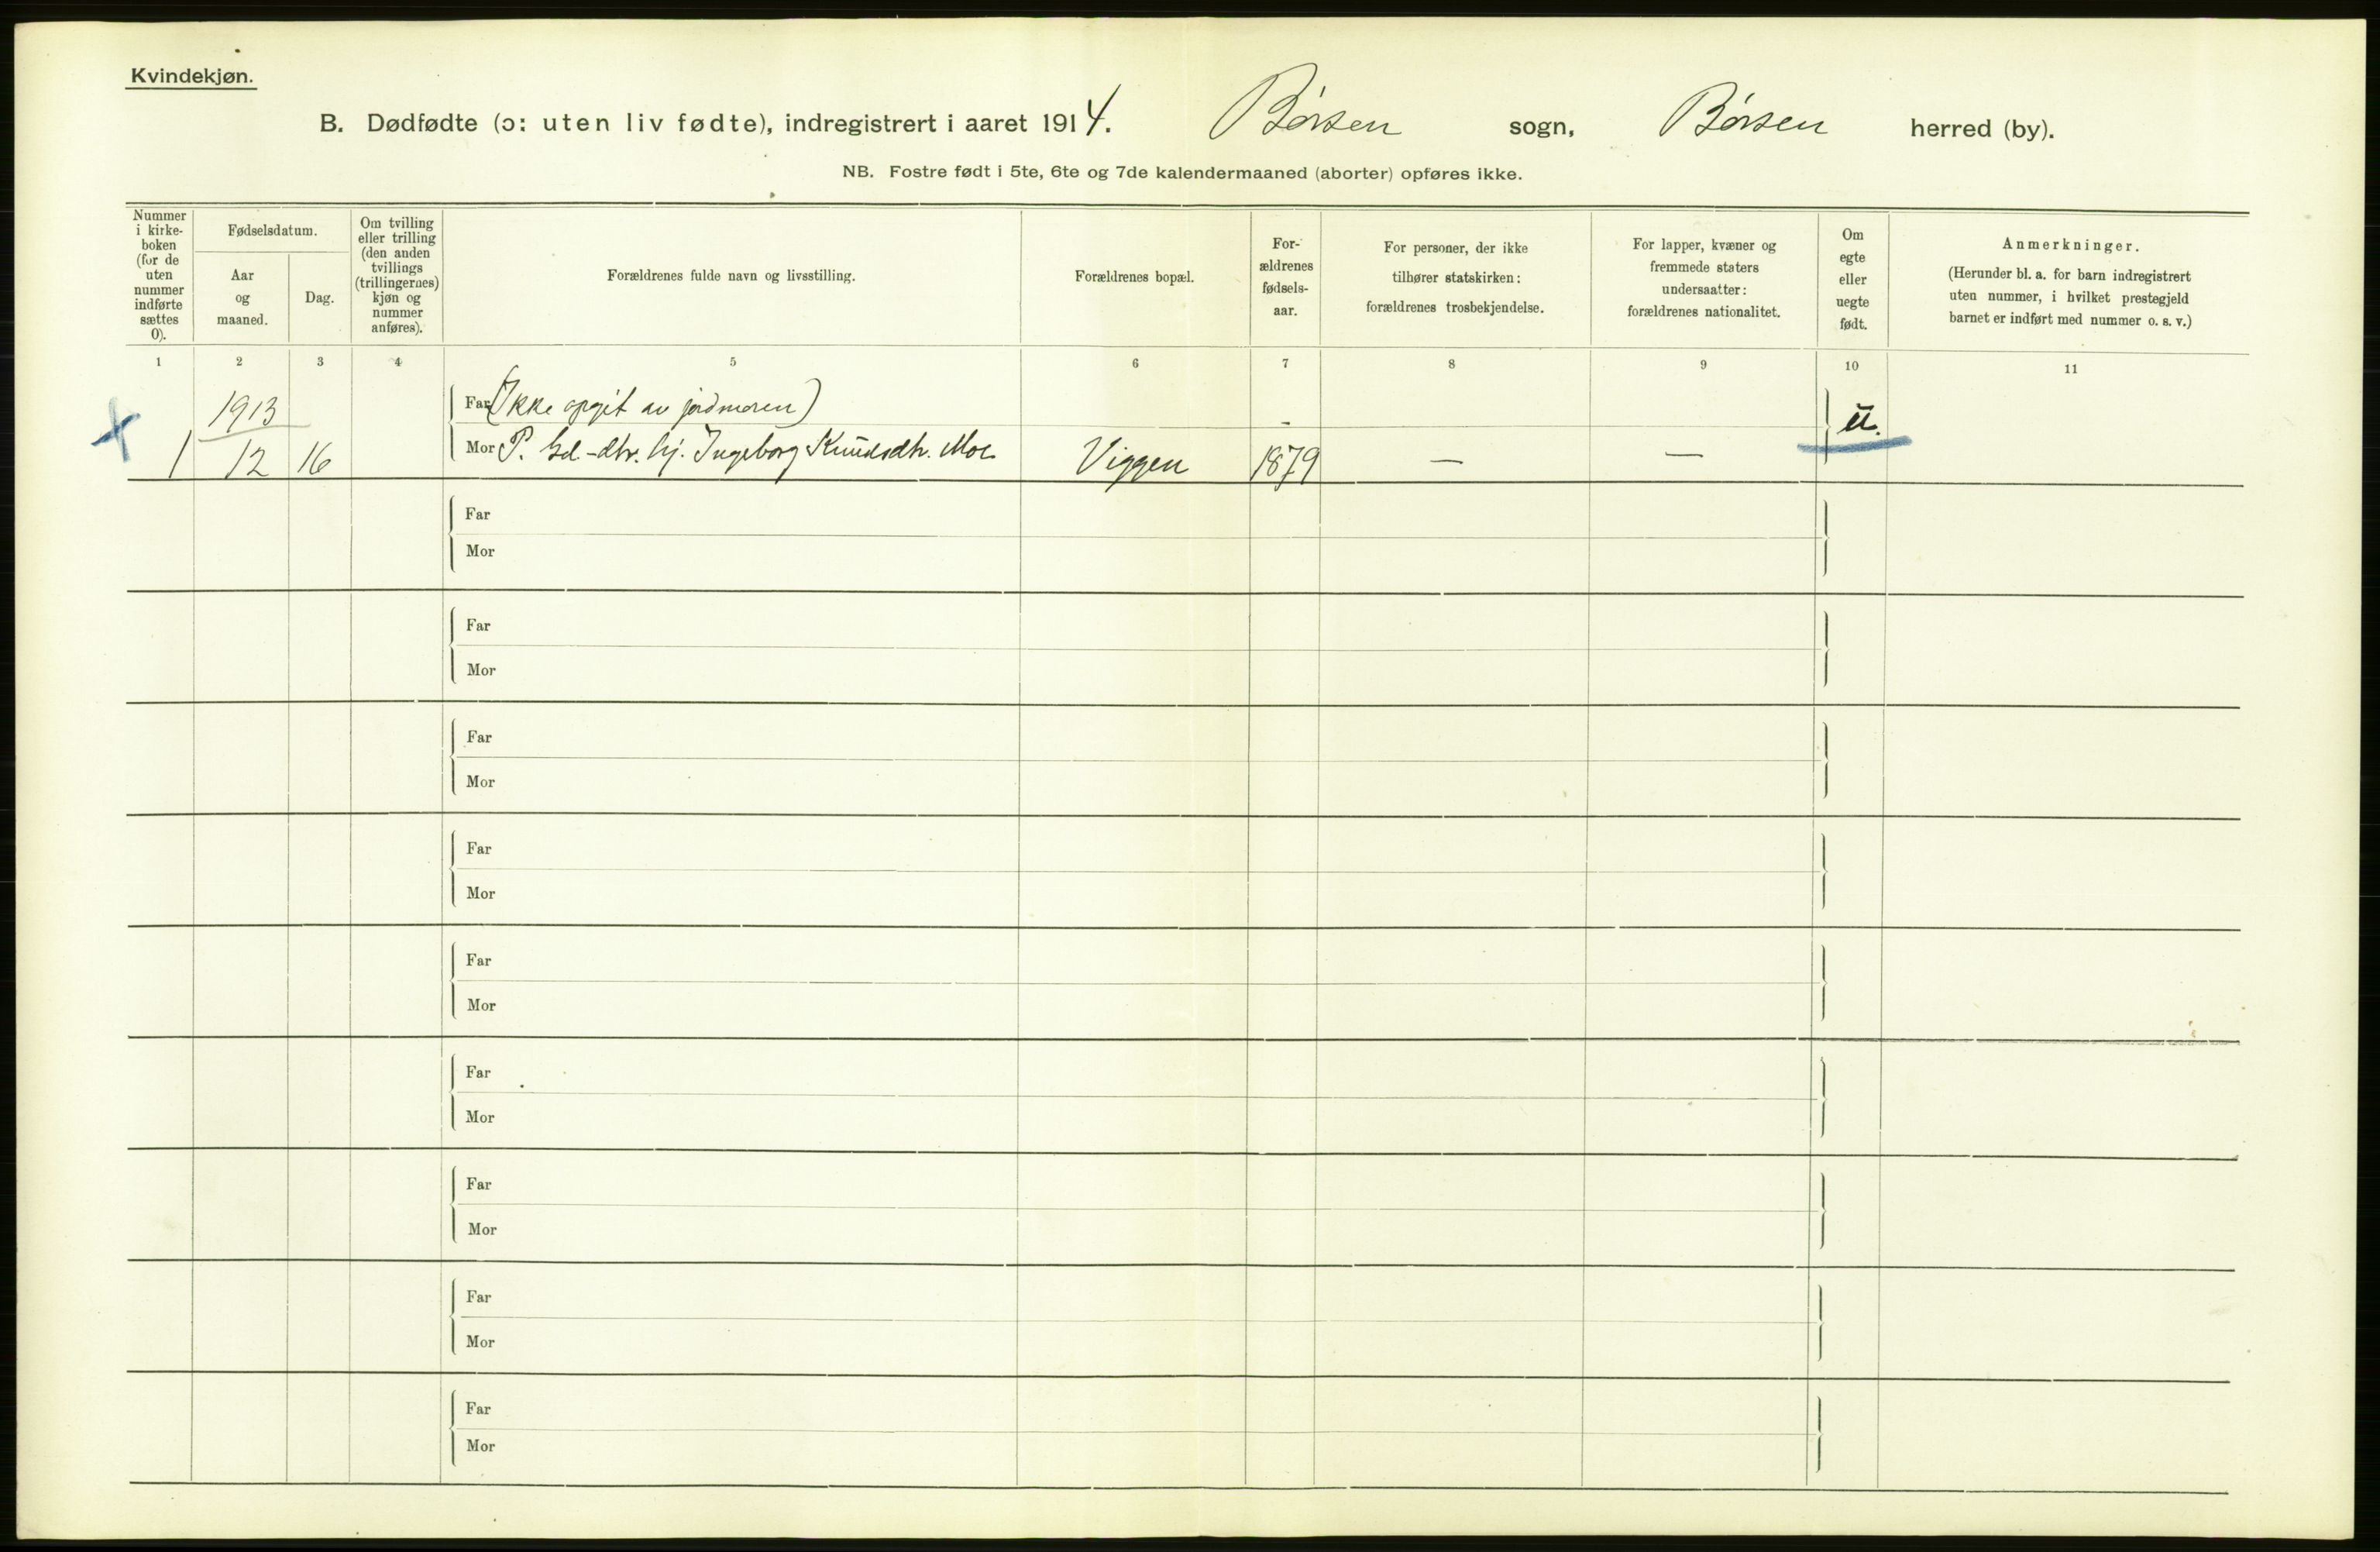 Kvindekjøn.
B. Dødfødte (ɔ: uten liv fødte), indregistrert i aaret 1914. Børsen sogn, Børsen herred (by).
NB. Fostre født i 5te, 6te og 7de kalendermaaned (aborter) opføres ikke.
Nummer
i kirke-
boken
(for de
uten
nummer
indførte
sættes
0).
Fødselsdatum.
Aar
og
maaned.
Dag.
Om tvilling
eller trilling
(den anden
tvillings
(trillingernes)
kjøn og
nummer
anføres).
Forældrenes fulde navn og livsstilling.
Forældrenes bopæl.
For-
ældrenes
fødsels-
aar.
For personer, der ikke
tilhører statskirken:
forældrenes trosbekjendelse.
For lapper, kvæner og
fremmede staters
undersaatter:
forældrenes nationalitet.
Om
egte
eller
uegte
født.
Anmerkninger.
(Herunder bl. a. for barn indregistrert
uten nummer, i hvilket prestegjeld
barnet er indført med nummer o. s. v.)
1 2 3 4 5 6 7 8 9 10 11
1913 Far (Ikke opgit av jordmoren) - u.
1 12 16 Mor P. Gd-dtr. hj. Ingeborg Knudsdtr. Moe Viggen 1879 — —
Far
Mor
Far
Mor
Far
Mor
Far
Mor
Far
Mor
Far
Mor
Far
Mor
Far
Mor
Far
Mor